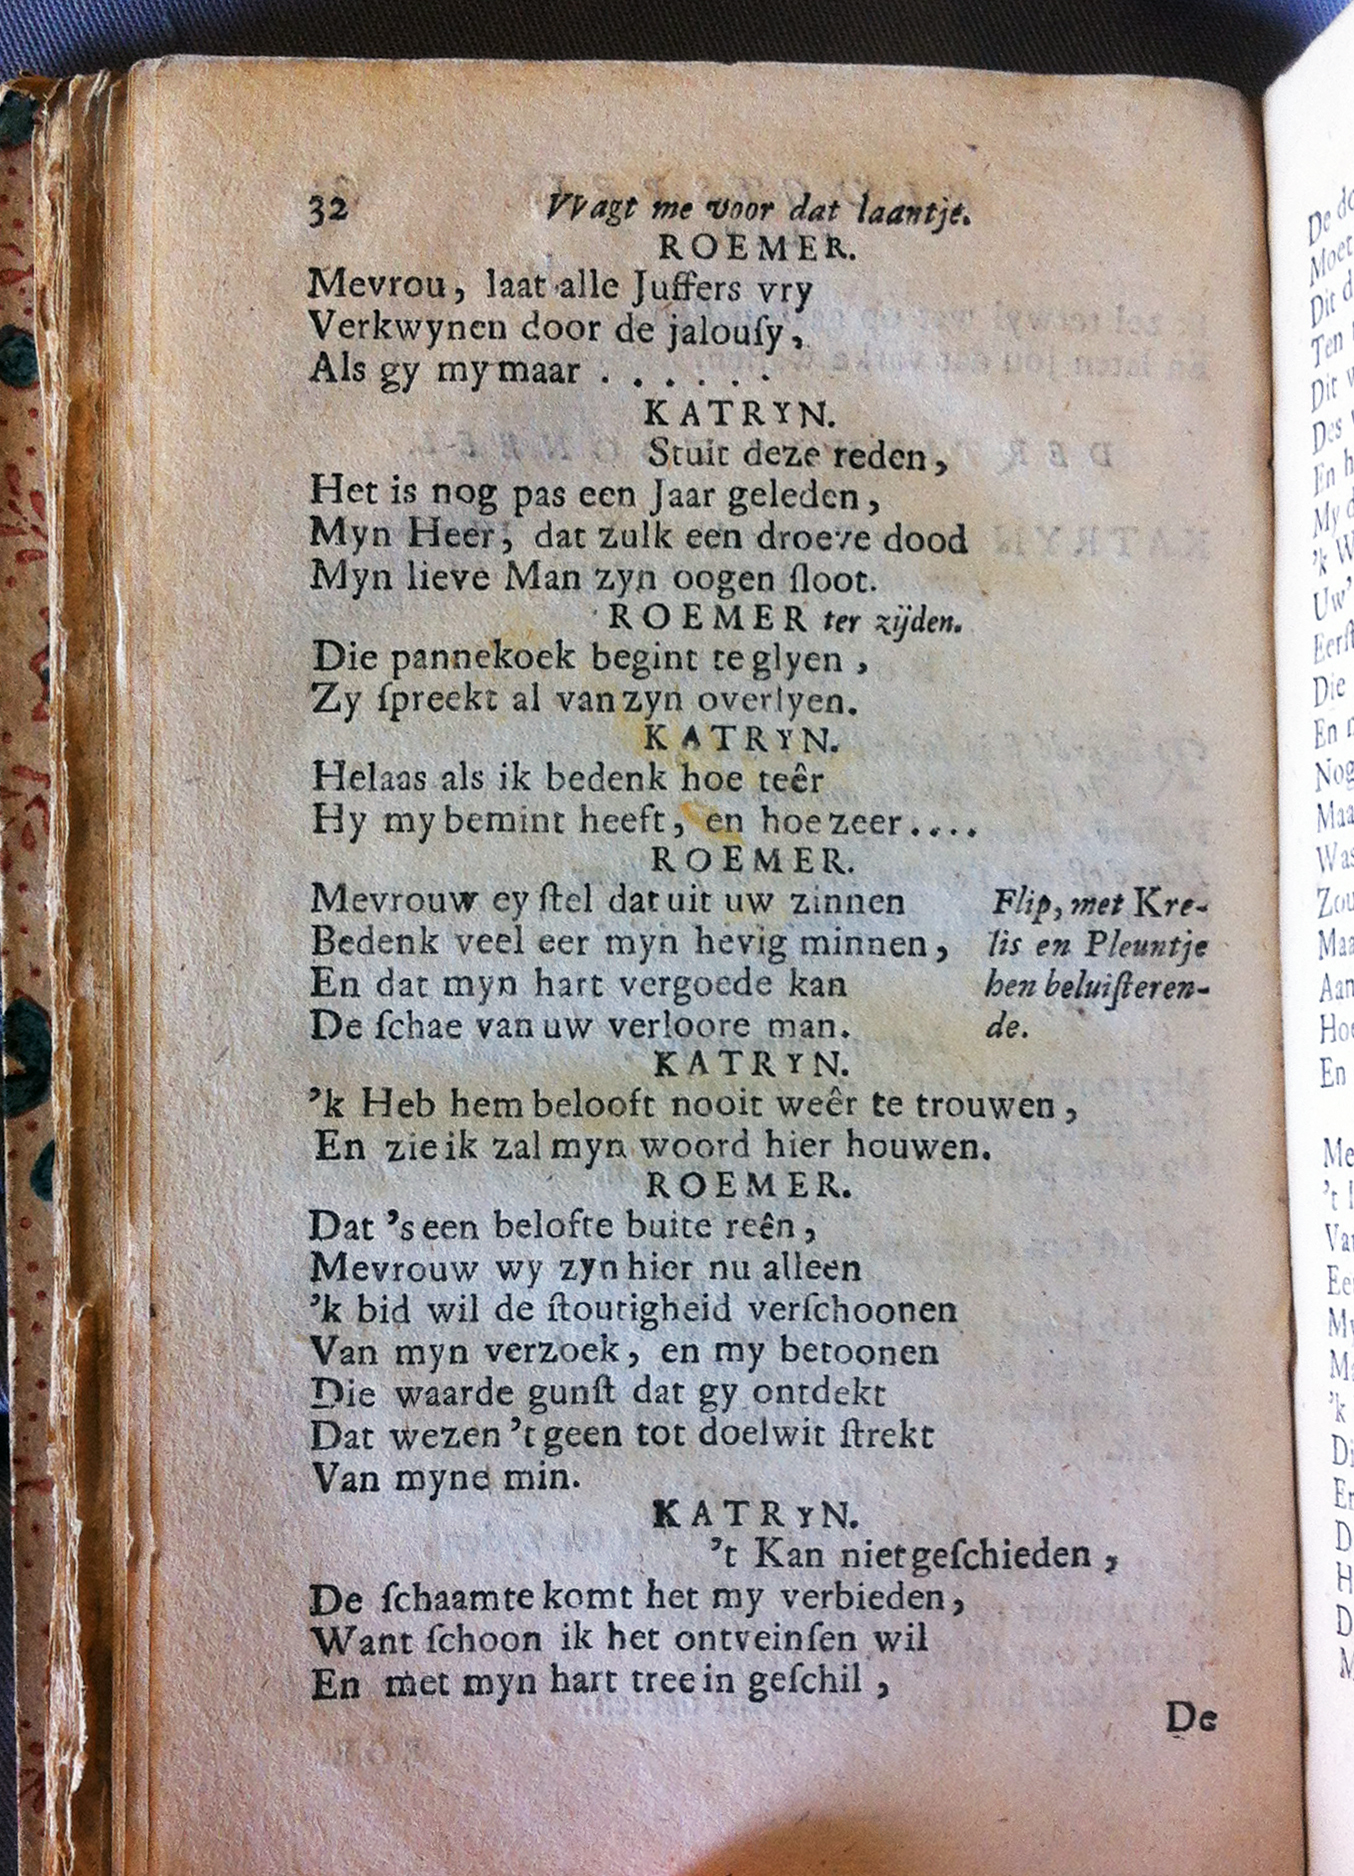 32 Wagt me voor dat laantje.
ROEMER.
Mevrou, laat alle Juffers vry
Verkwynen door de jalouſy,
Als gy my maar . . . . . .
KATRYN.
Stuit deze reden,
Het is nog pas een Jaar geleden,
Myn Heer, dat zulk een droeve dood
Myn lieve Man zyn oogen ſloot.
ROEMER ter zijden.
Die pannekoek begint te glyen,
Zy ſpreekt al van zyn overlyen.
KATRYN.
Helaas als ik bedenk hoe teêr
Hy my bemint heeft, en hoe zeer....
ROEMER.
Mevrouw ey ſtel dat uit uw zinnen
Bedenk veel eer myn hevig minnen,
En dat myn hart vergoede kan
De ſchae van uw verloore man.
Flip, met Kre-
lis en Pleuntje
hen beluiſteren-
de.
KATRYN.
’k Heb hem belooft nooit weêr te trouwen,
En zie ik zal myn woord hier houwen.
ROEMER.
Dat ’s een belofte buite reên,
Mevrouw wy zyn hier nu alleen
’k bid wil de ſtoutigheid verſchoonen
Van myn verzoek, en my betoonen
Die waarde gunſt dat gy ontdekt
Dat wezen ’t geen tot doelwit ſtrekt
Van myne min.
KATRYN.
’t Kan niet geſchieden,
De ſchaamte komt het my verbieden,
Want ſchoon ik het ontveinſen wil
En met myn hart tree in geſchil,
De